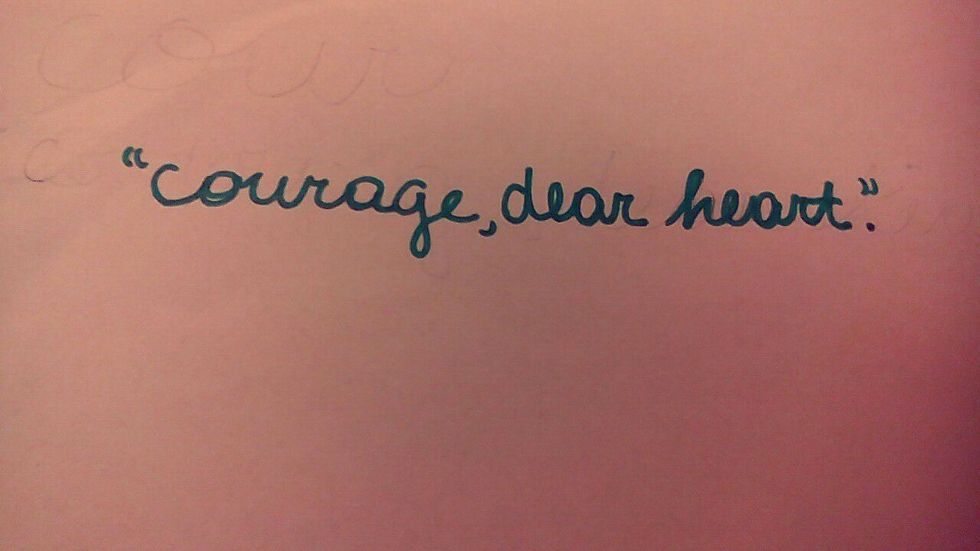 cour
"courage, dear heart".